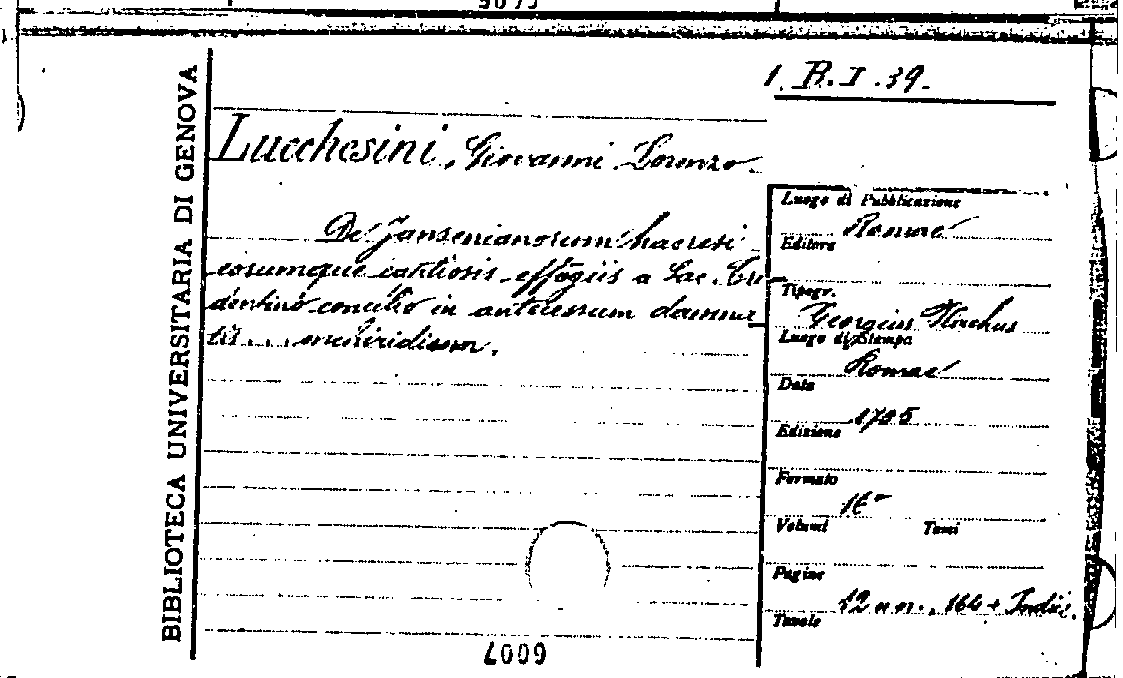 1. B. I. 39.
BIBLIOTECA UNIVERSITARIA DI GENOVA
Lucchesini, Giovanni Lorenzo
De Jansenianorum haeresi
eorumque captiosis effugiis a Sac. Tri
dentino concilio in antecessum damna
tis ... enchiridium.
Luogo di Pubblicazione
Romae
Editore
Tipogr.
Georgius
Luogo di Stampa
Romae
Data
1705
Edizione
Formato
16°
Volumi Tomi
Pagine
12 n n., 164 + Indic.
Tavole
6007